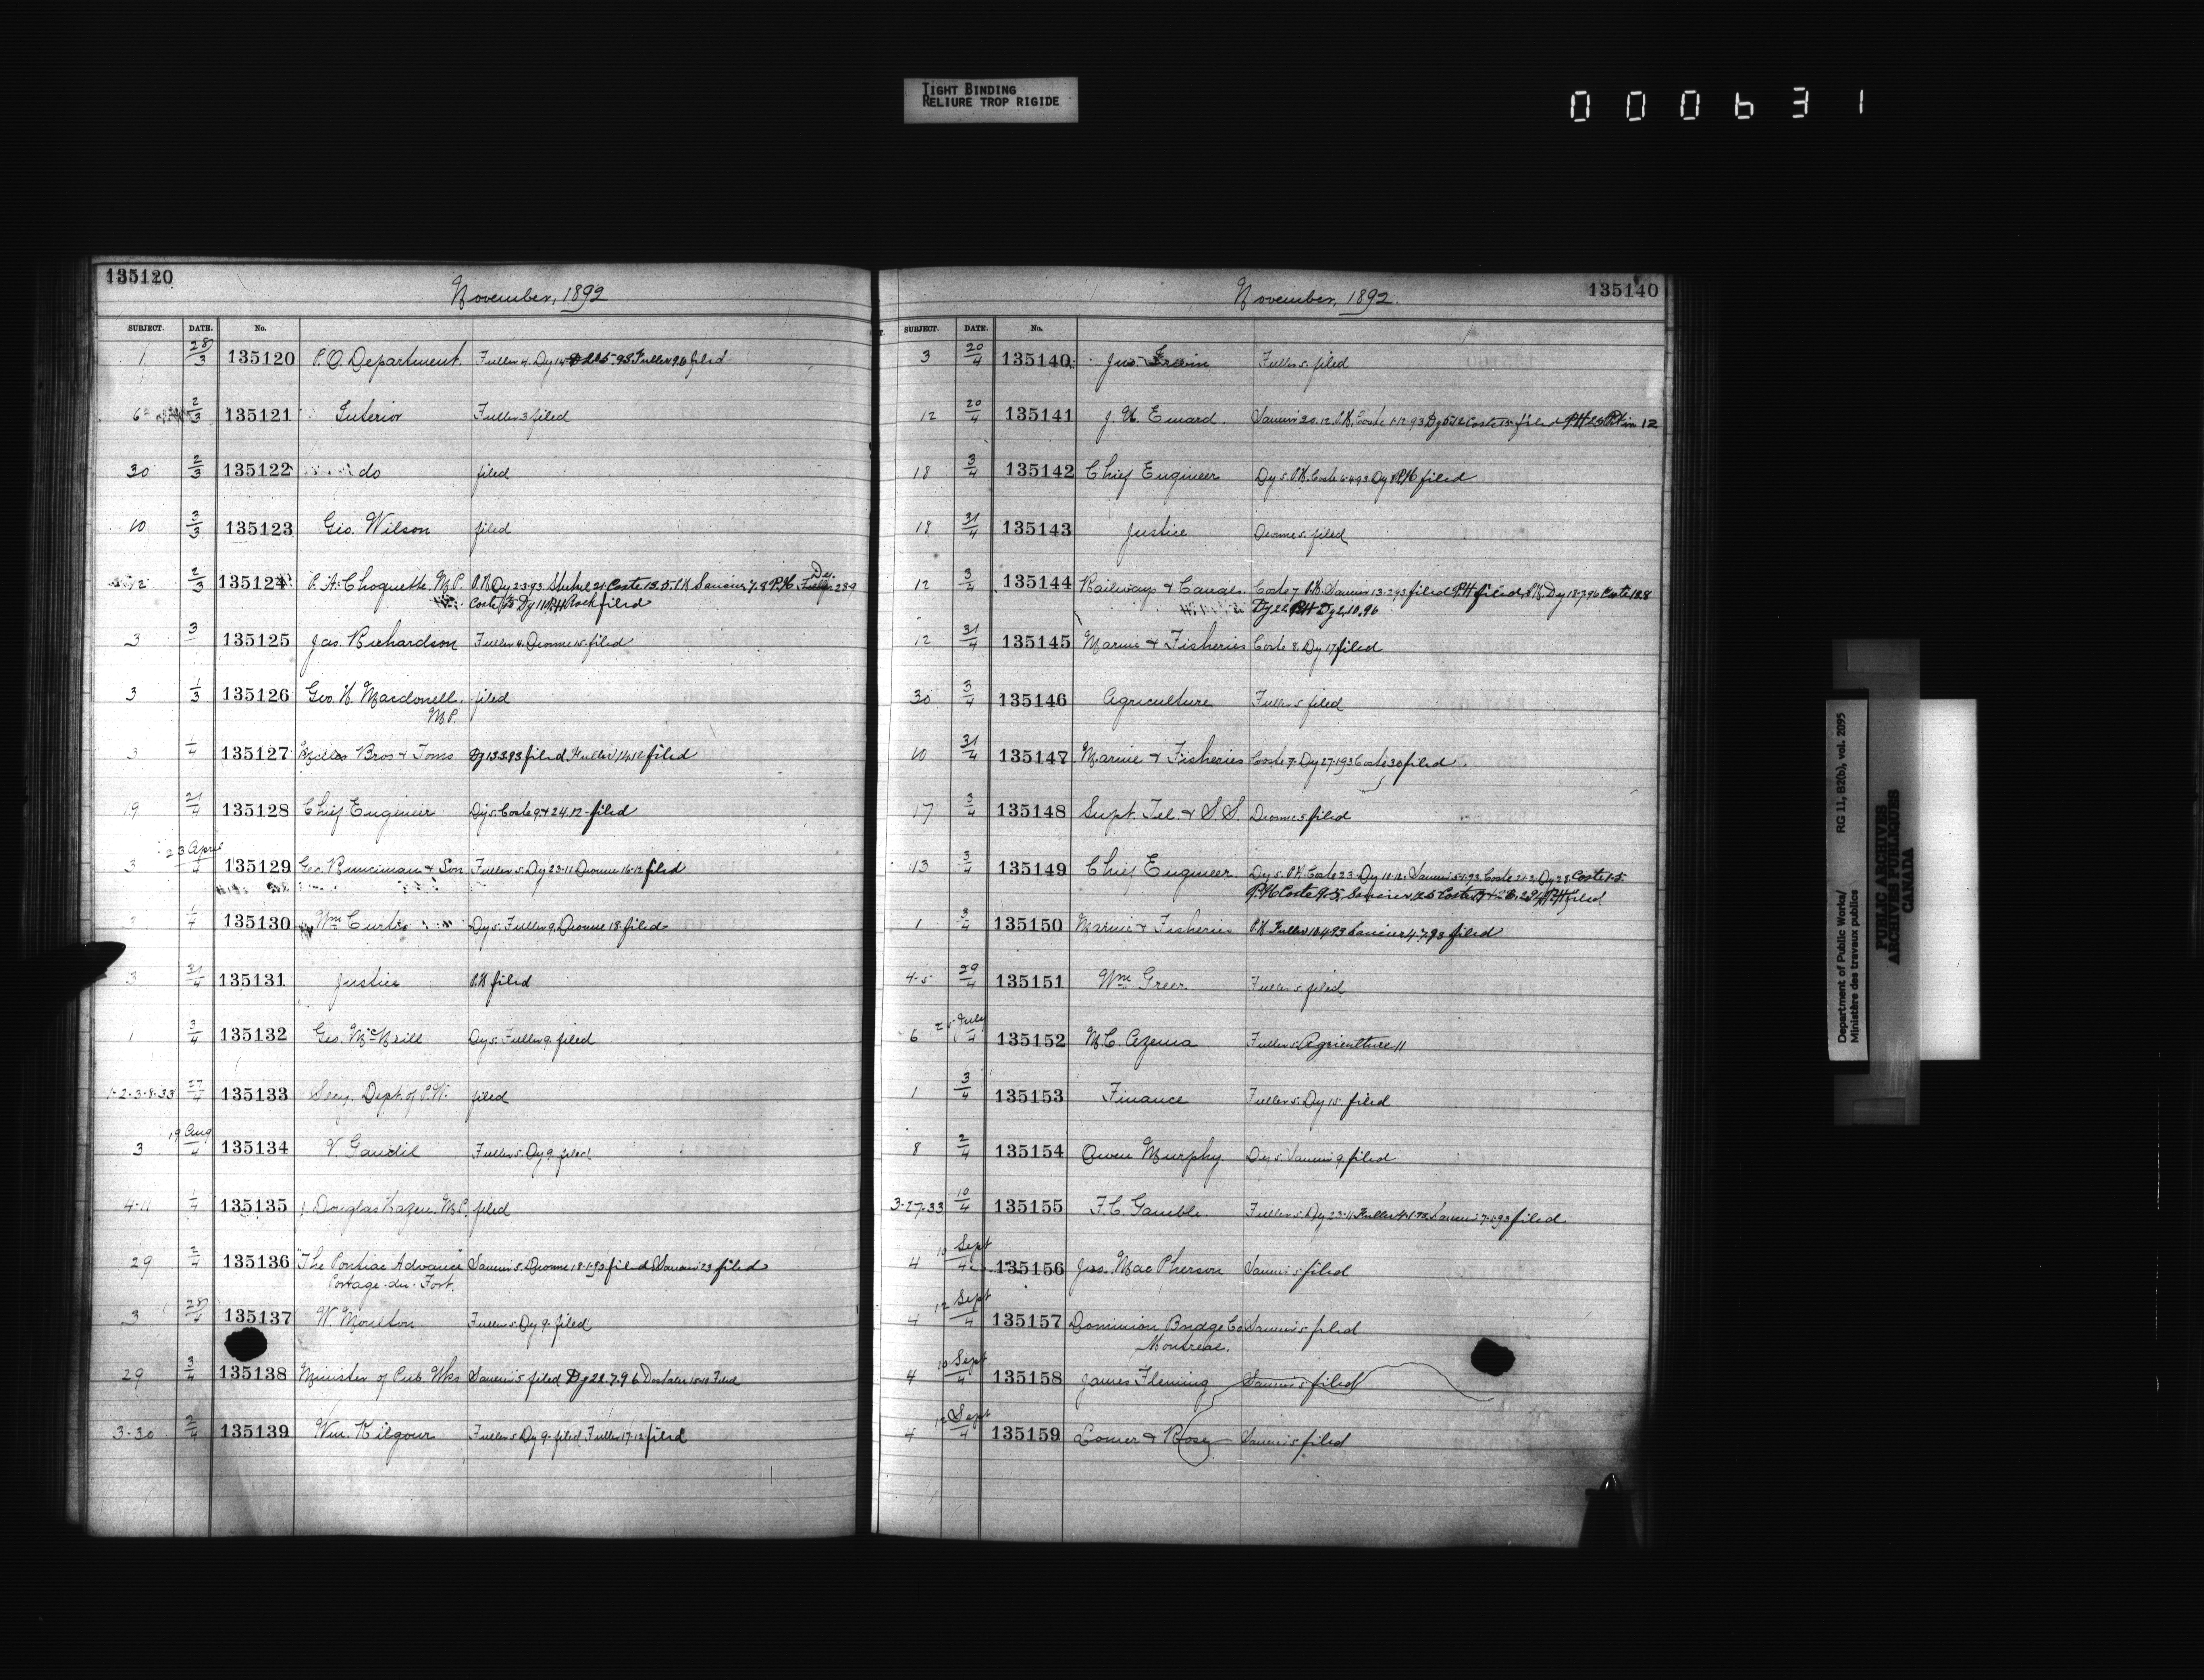 TIGHT BINDING
RELIURE TROP RIGIDE
000631
135120
November, 1892
SUBJECT. DATE. No.
1 28/3 135120 P.O. Department. Fuller 4. Dy 14 Fuller 9.6 filed
6 2/3 135121 Interior Fuller 3 filed
30 2/3 135122 do filed
10 3/3 135123 Geo. Wilson filed
12 2/3 135124 P. A. Choquette. M.P. P.K Dy 2.3.93 Coste 13.5. P.K
Coste Dy 11 filed
3 3 135125 Jas. Richardson Fuller 4. Dionne 15. filed
3 1/3 135126 Geo. H. Macdonell. filed
M.P.
3 1/4 135127 Miller Bros & Toms Dy 13.3.93 filed. Fuller 14.12 filed
19 21/4 135128 Chief Engineer Dy 5. Coste 9 & 24.12. filed
3 23 April/4 135129 Geo. Runciman & Son Fuller 5. Dy 23.11 Dionne 16.12 filed
3 1/4 135130 Wm Curtis Dy 5. Fuller 9. Dionne 18. filed
3 31/4 135131 Justice P.K filed
1 3/4 135132 Geo. McNeill Dy 5. Fuller 9. filed
1-2-3-8-33 27/4 135133 Secy. Dept. of P.W. filed
3 19 Aug/4 135134 V. Gaudil Fuller 5. Dy 9. filed
4-11 1/4 135135 J. Douglas Hazen. M.P. filed
29 2/4 135136 The Pontiac Advance 5. Dionne 18.1.93 filed 23 filed
Portage-du-Fort.
3 28/4 135137 W. Moulton Fuller 5. Dy 9. filed
29 3/4 135138 Minister of Pub. Wks 5 filed Dy 22.7.96 Filed
3-30 2/4 135139 Wm. Kilgour Fuller 5. Dy 9. filed. Fuller 17.12. filed
November, 1892.
135140
SUBJECT. DATE. No.
3 20/4 135140 Jno. Irwin Fuller 5. filed
12 20/4 135141 J. H. Emard. 20.12. P.K. Coste 1.12.93 filed
18 3/4 135142 Chief Engineer Dy 5. P.K. Coste 6.4.93. Dy 8 P.K filed
18 31/4 135143 Justice Dionne 5. filed
12 3/4 135144 Railways & Canals. Coste 7 P.K. 13.2.93 filed P.K filed. P.K. Dy 18.7.96 Coste 18.8
Dy 22 P.K Dy 2.10.96
12 31/4 135145 Marine & Fisheries Coste 8. Dy 17 filed
30 3/4 135146 Agriculture Fuller 5 filed
10 31/4 135147 Marine & Fisheries Coste 7. Dy 27.1.93 Coste 30 filed
17 3/4 135148 Supt. Tel. & S.S. Dionne 5 filed
13 3/4 135149 Chief Engineer Dy 5. P.K. Coste 23. Dy 11.12. 5.1.93. Coste 21.2. Dy 28 Coste 1.5.
P.K Coste 9.5. filed
1 3/4 135150 Marine & Fisheries P.K. Fuller 18.4.93 4.7.93 filed
4-5 29/4 135151 Wm Greer. Fuller 5. filed
6 25 July/4 135152 M. C. Azema Fuller 5. Agriculture 11
1 3/4 135153 Finance Fuller 5. Dy 15. filed
8 2/4 135154 Owen Murphy. Dy 5. 9. filed
3-27-33 10/4 135155 F. C. Gamble. Fuller 5. Dy 23.11. Fuller 4.1.93. 7.1.93 filed
4 10 Sept/4 135156 Jno. MacPherson 5 filed
4 12 Sept/4 135157 Dominion Bridge Co 5 filed
Montreal.
4 10 Sept/4 135158 James Fleming 5 filed
4 12 Sept/4 135159 Lomer & Rose 5 filed
Department of Public Works/ RG 11, B2(b), vol. 2095
Ministère des travaux publics
PUBLIC ARCHIVES
ARCHIVES PUBLIQUES
CANADA